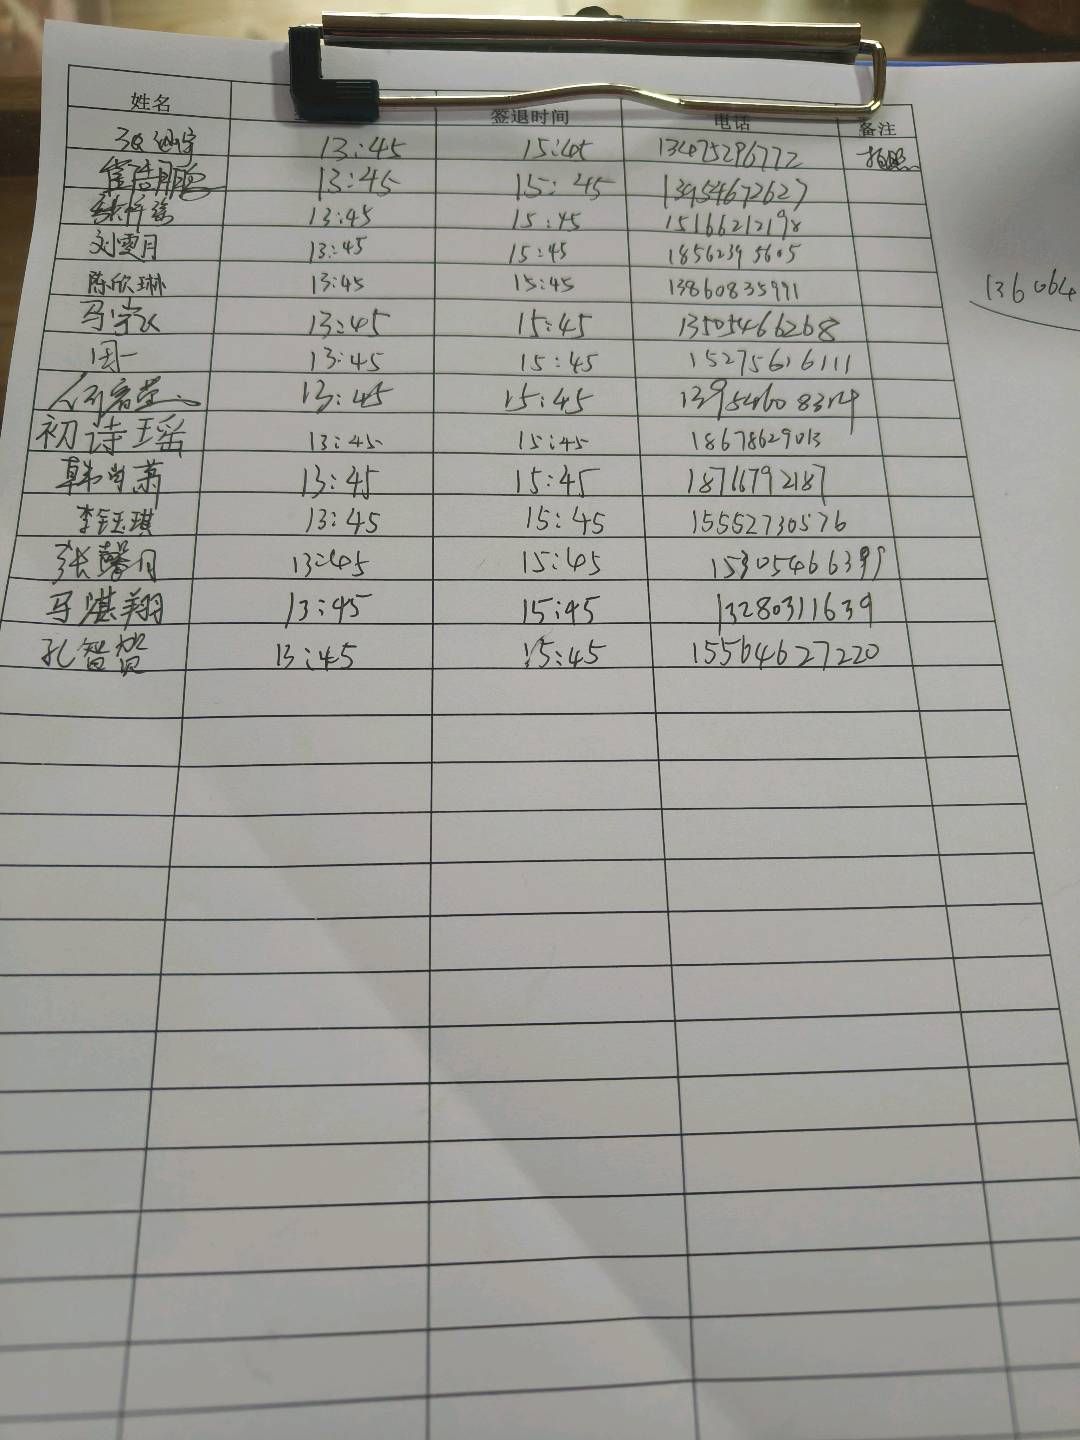 姓名 签退时间 电话 备注
13:45 15:45 13475296772 拍照
13:45 15:45 13954672627
13:45 15:45 15166212198
刘雯月 13:45 15:45 18562395605
陈欣琳 13:45 15:45 13860835991
13:45 15:45 13505466268
周一 13:45 15:45 15275616111
13:45 15:45
初诗瑶 13:45 15:45 18678629013
韩肖萧 13:45 15:45 18716792187
李钰琪 13:45 15:45 15552730576
张馨月 13:45 15:45
马淇翔 13:45 15:45 13280311639
孔智贺 13:45 15:45 15564627220
136064